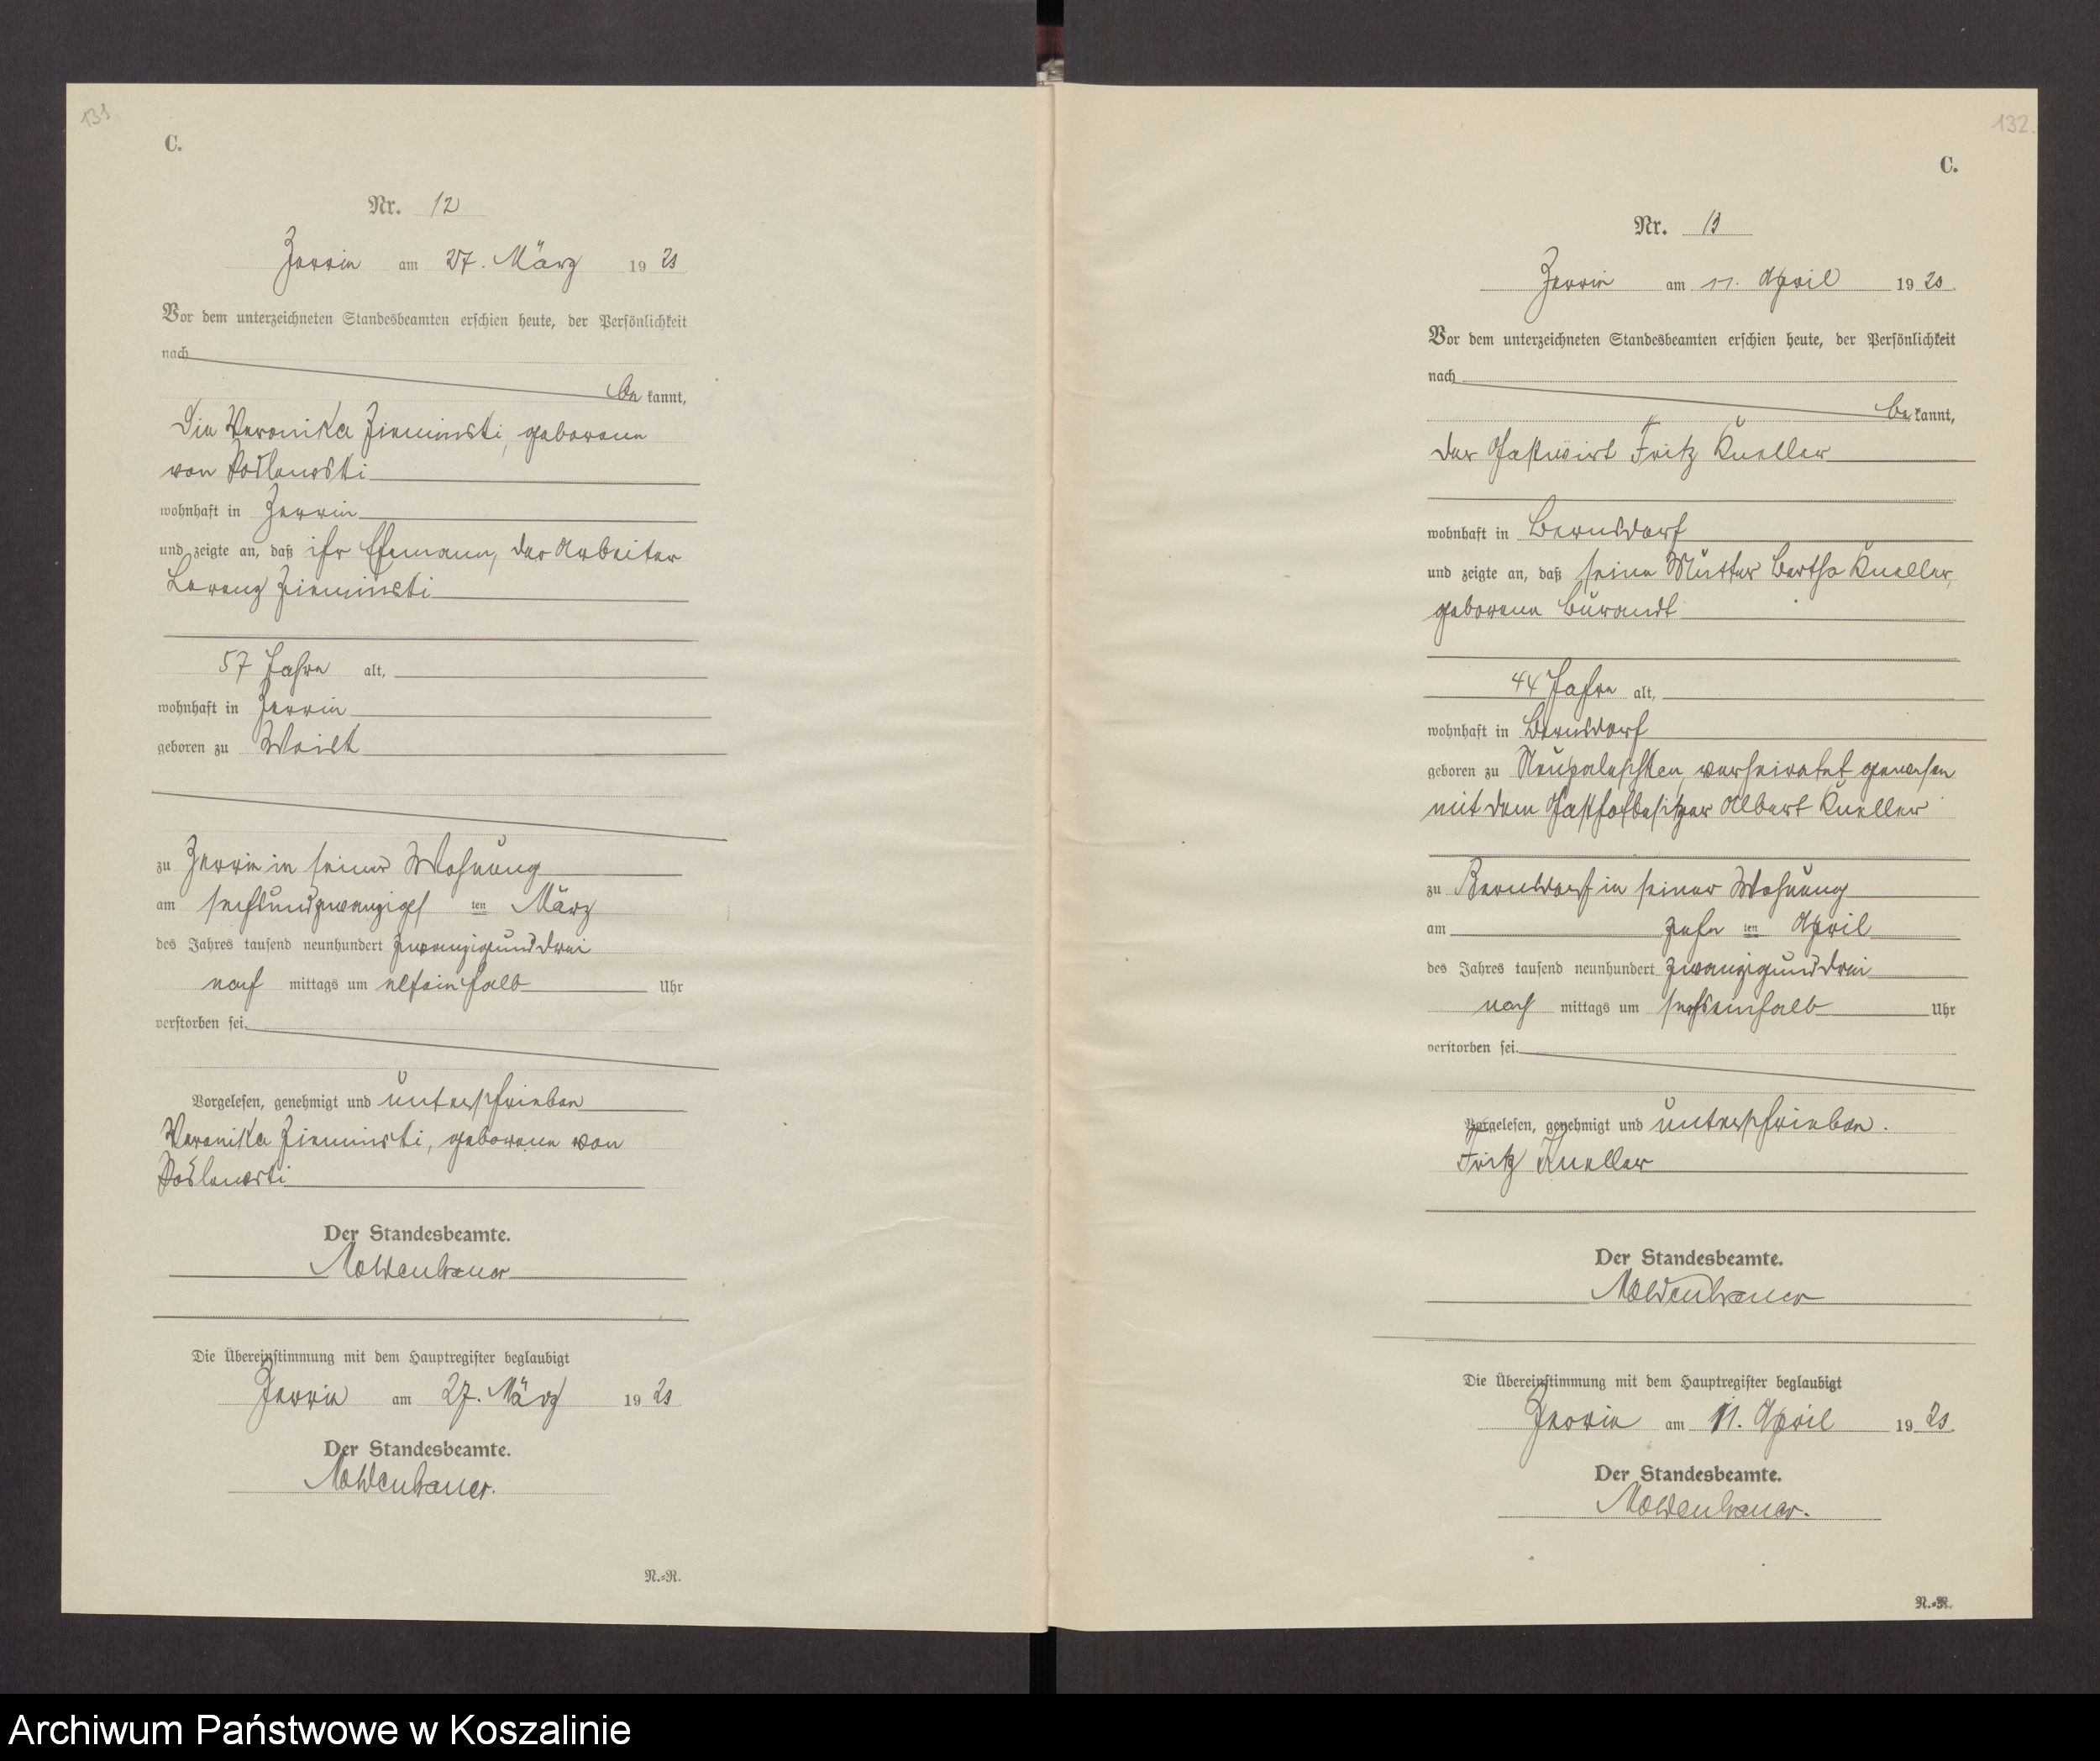 131.
C.
Nr. 12
Zerrin am 27. März 1923
Vor dem unterzeichneten Standesbeamten erschien heute, der Persönlichkeit
nach
be kannt,
die Veronika Zieminski, geborene
von
wohnhaft in Zerrin
und zeigte an, daß ihr Ehemann, der Arbeiter
Lorenz Zieminski
57 Jahre alt,
wohnhaft in Zerrin
geboren zu
zu Zerrin in seiner Wohnung
am sechsundzwanzigs ten März
des Jahres tausend neunhundert zwanzigunddrei
nach mittags um elfeinhalb Uhr
verstorben sei.
Vorgelesen, genehmigt und unterschrieben
Veronika Zieminski, geborene von
Der Standesbeamte.
Moldenhauer
Die Übereinstimmung mit dem Hauptregister beglaubigt
Zerrin am 27. März 1923
Der Standesbeamte.
Moldenhauer.
N.=N.
132.
C.
Nr. 13
Zerrin am 11. April 1923.
Vor dem unterzeichneten Standesbeamten erschien heute, der Persönlichkeit
nach
be kannt,
der Gastwirt Fritz Kueller
wohnhaft in Bernsdorf
und zeigte an, daß seine Mutter Bertha Kueller,
geborene Burandt
44 Jahre alt,
wohnhaft in Bernsdorf
geboren zu Neupaleschken, verheiratet gewesen
mit dem Gasthofbesitzer Albert Kueller
zu Bernsdorf in seiner Wohnung
am zehn ten April
des Jahres tausend neunhundert zwanzigunddrei
nach mittags um sechseinhalb Uhr
verstorben sei.
Vorgelesen, genehmigt und unterschrieben.
Fritz Kueller
Der Standesbeamte.
Moldenhauer
Die Übereinstimmung mit dem Hauptregister beglaubigt
Zerrin am 11. April 1923.
Der Standesbeamte.
Moldenhauer.
N.=N.
Archiwum Państwowe w Koszalinie